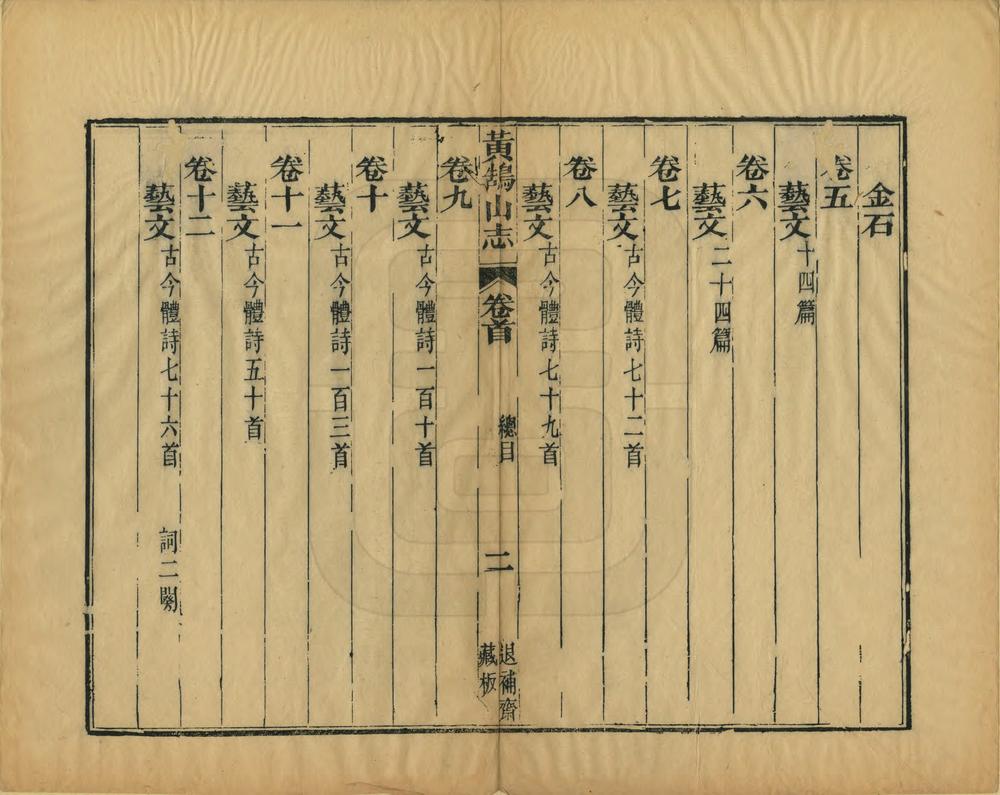 金石
卷五
藝文十四篇
卷六
藝文二十四篇
卷七
藝文古今體詩七十二首
卷八
藝文古今體詩七十九首
黃鵠山志 卷首 總目 二 退補齋藏板
卷九
藝文古今體詩一百十首
卷十
藝文古今體詩一百三首
卷十一
藝文古今體詩五十首
卷十二
藝文古今體詩七十六首 詞二闋